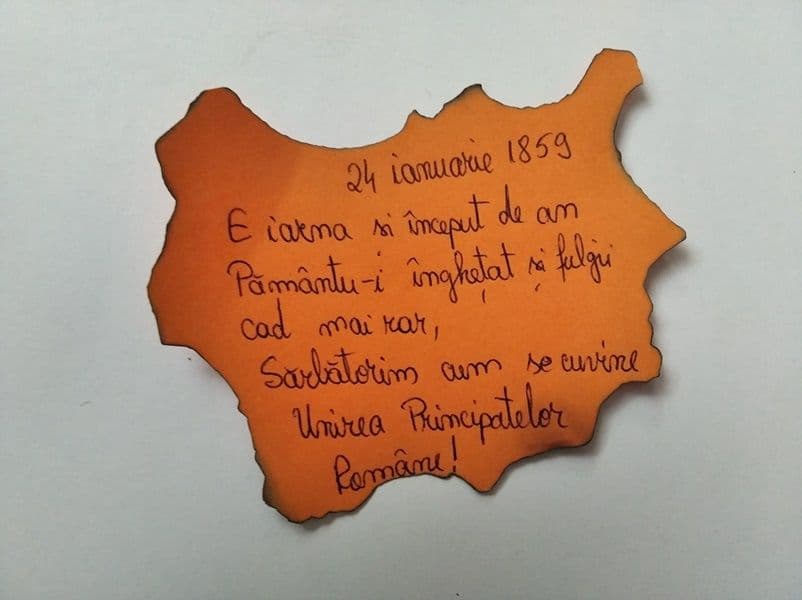 24 ianuarie 1859
E iarna si început de an
Pământu-i înghețat și fulgii
cad mai rar,
Sărbătorim cum se cuvine
Unirea Principatelor
Române!